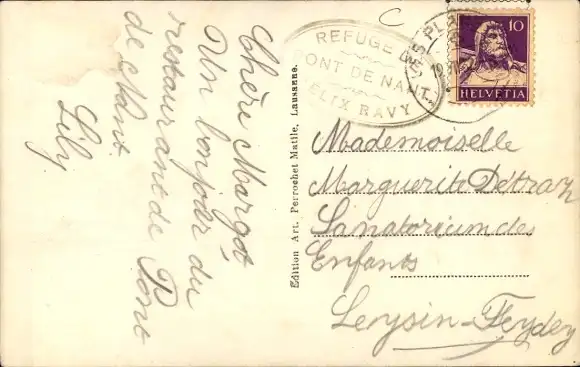 Chère Margot
Un bonjour du
restaurant de Pont
de Nant.
Lily
Edition Art. Perrochet Matile, Lausanne.
REFUGE DE
PONT DE NANT
FÉLIX RAVY
10
HELVETIA
Mademoiselle
Marguerite Détraz
Sanatorium des
Enfants
Leysin-Feydey